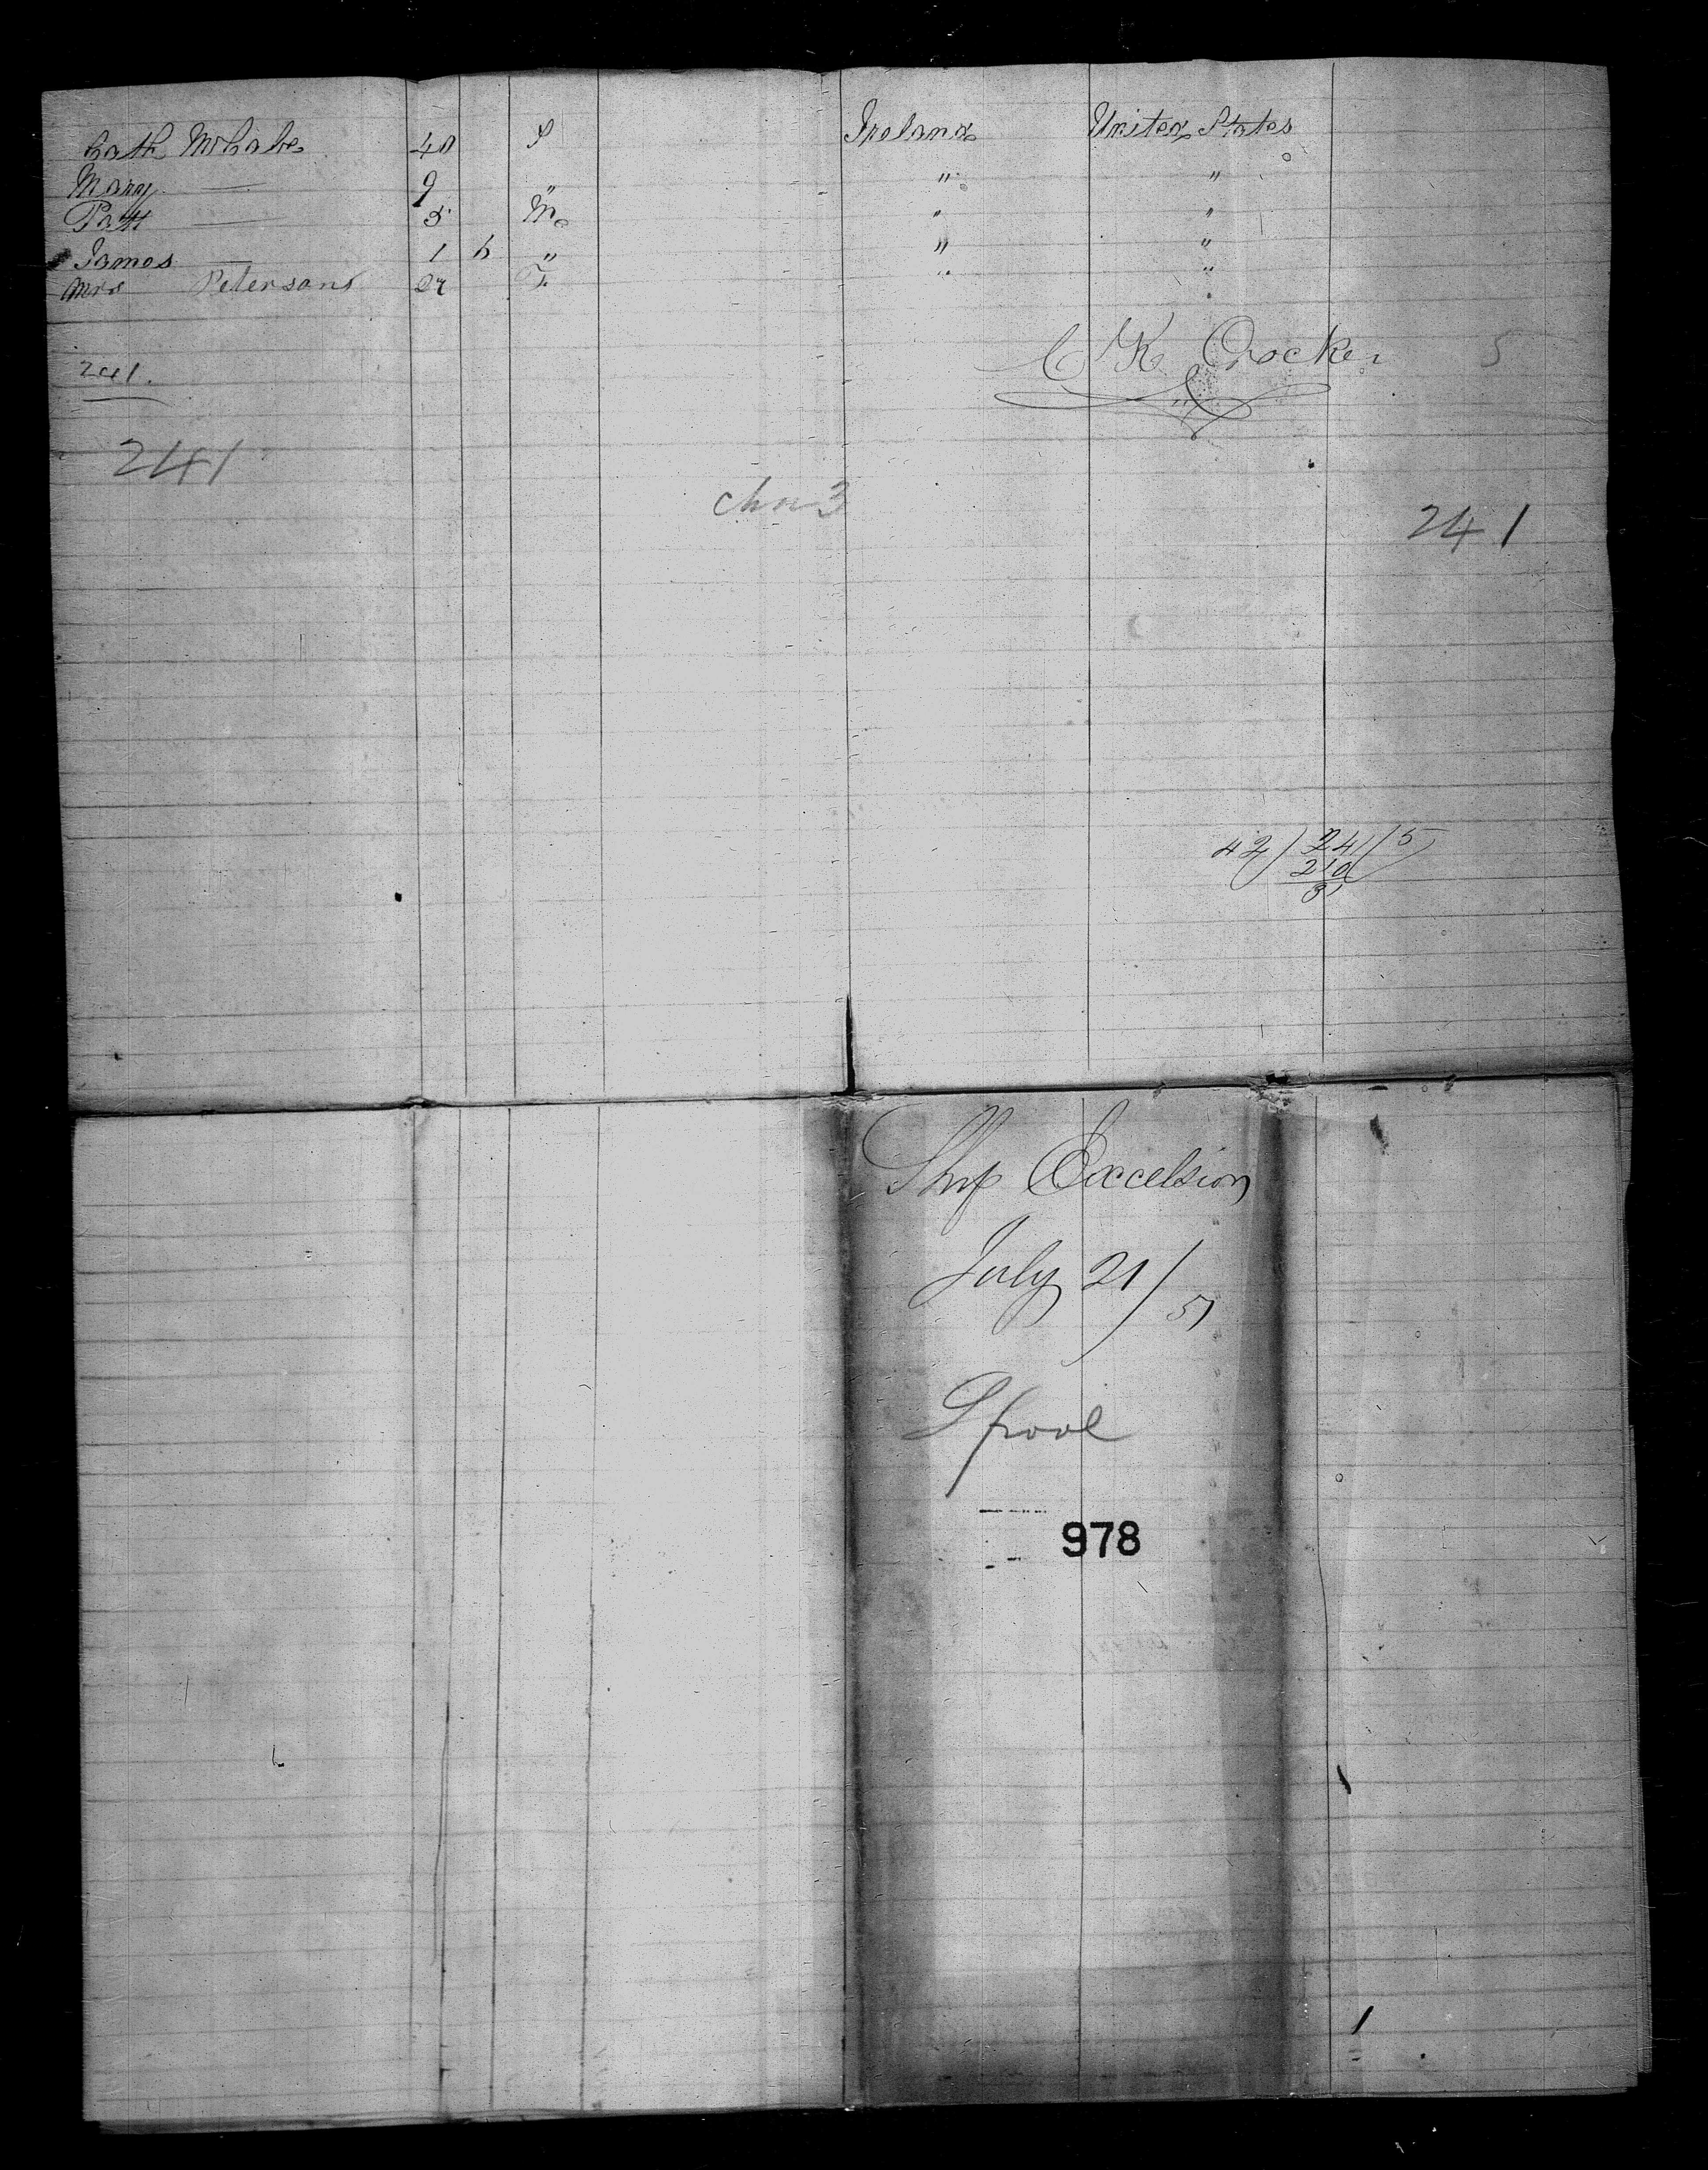 Cath McCabe 40 F Ireland United States
Mary — 9 " " "
Patt — 5 M " "
James — 1 6 " " "
Mrs Petersons 27 F " "
C K Crocker 5
241.
241
chn 3
241
42 / 241 / 5
210
31
Ship Excelsior
July 21/51
Lpool
978